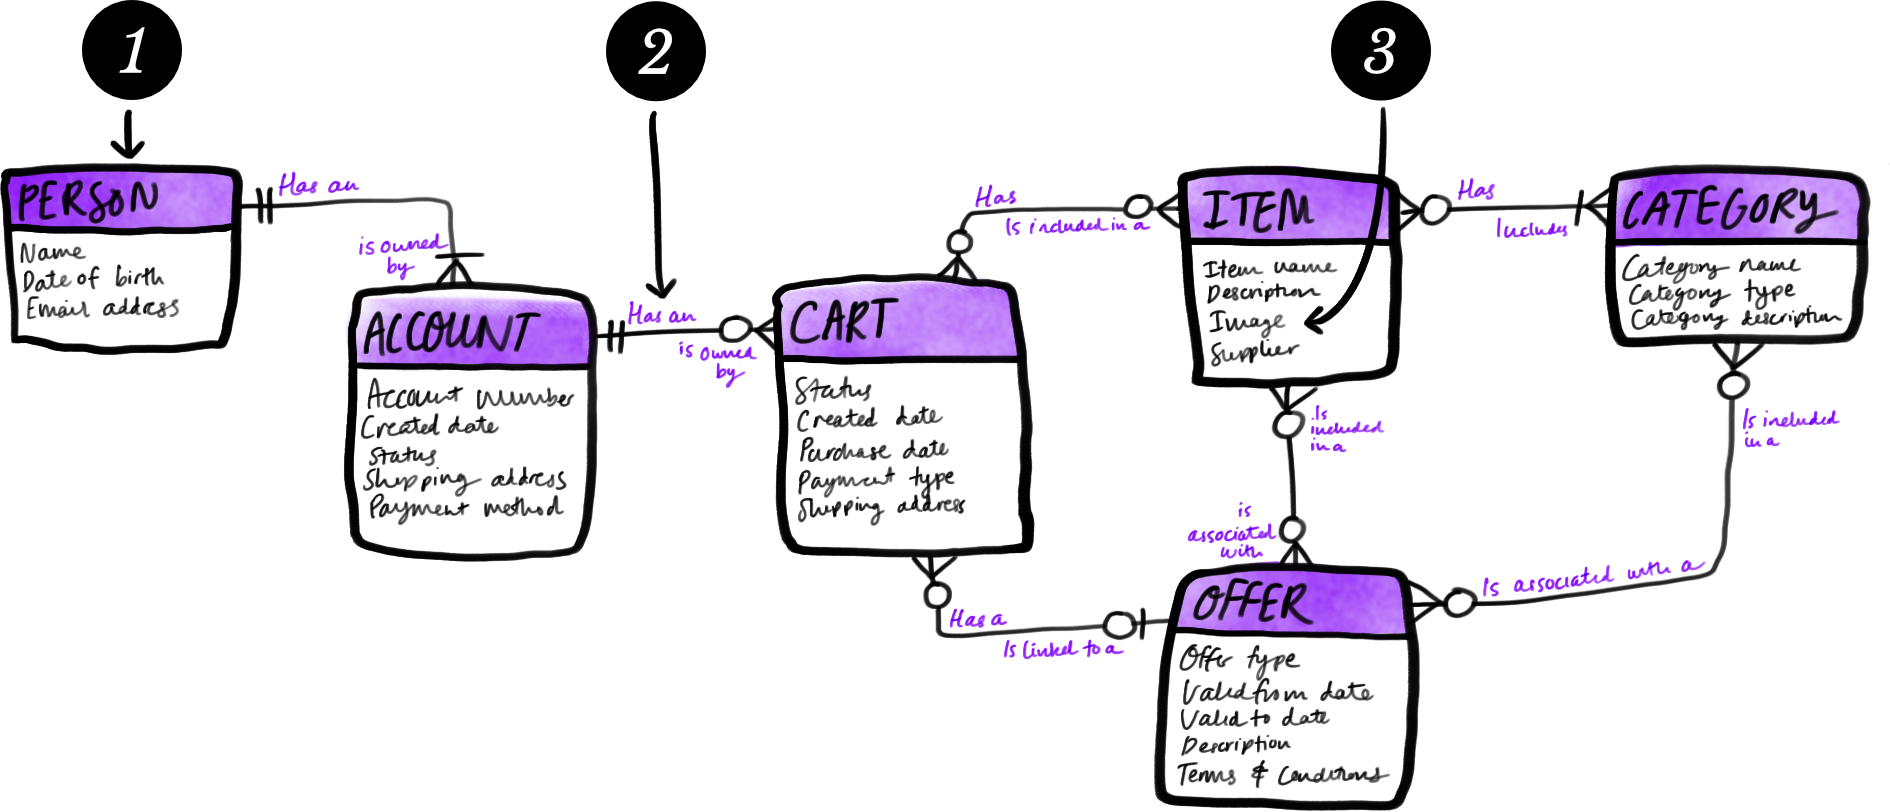 1
2
3
PERSON
Name
Date of birth
Email address
Has an
is owned
by
ACCOUNT
Account number
Created date
Status
Shipping address
Payment method
Has an
is owned
by
CART
Status
Created date
Purchase date
Payment type
Shipping address
Has
Is included in a
ITEM
Item name
Description
Image
Supplier
Has
Includes
CATEGORY
Category name
Category type
Category description
Is
included
in a
is
associated
with
Is included
in a
Is associated with a
Has a
Is linked to a
OFFER
Offer type
Valid from date
Valid to date
Description
Terms & Conditions